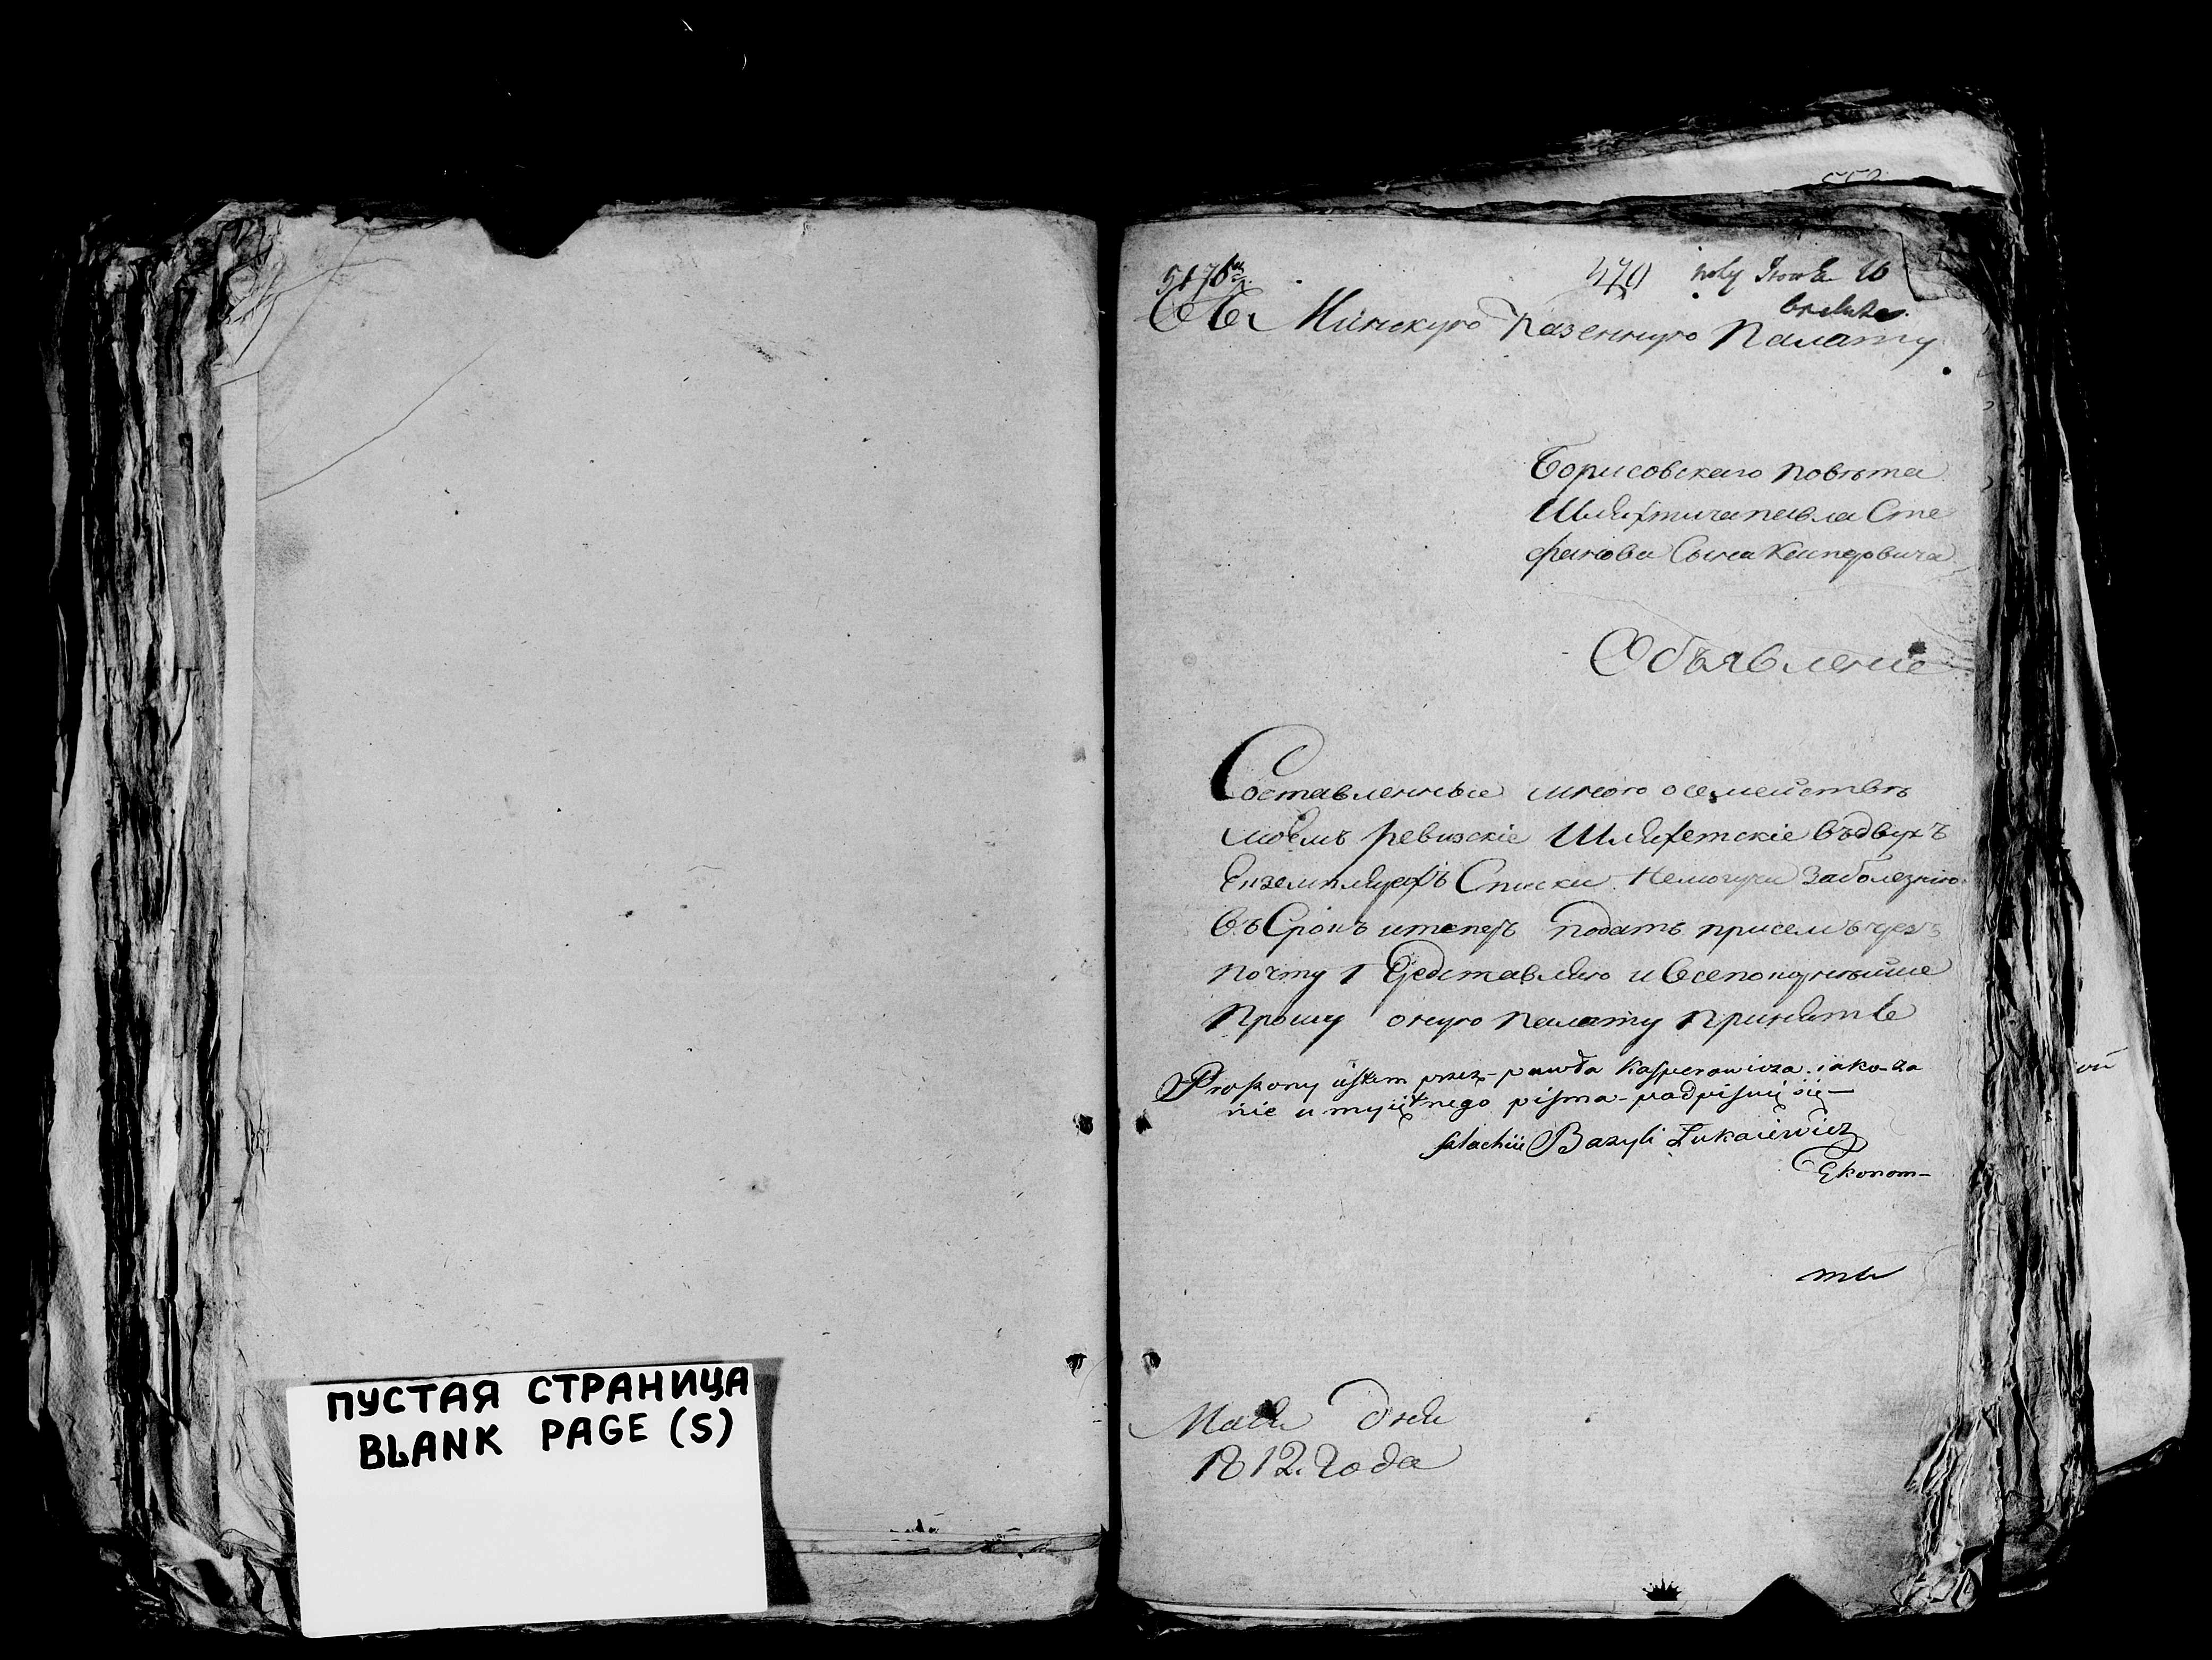 ПУСТАЯ СТРАНИЦА
BLANK PAGE (S)
5176
470
Въ Минскую Казенную Палату
Борисовскаго повѣта
Шляхтича павла Сте
фанова Сына Касперовича
Объявленіе
Составленные мною о семействѣ
моемъ ревизскіе Шляхетскіе въ двухъ
Екземплярахъ Списки немогучи заболезнію
въ Срокъ итеперъ подать присемъ чрезъ
почту Представляю и всепокорнѣйше
прошу оную палату принять
Proszony ustem przez pawła Kasperowicza iako za
nie umyiętnego pisma podpisuię się
szlachcic Bazyli Łukaiewicz
Ekonom
Мая дня
1812 года